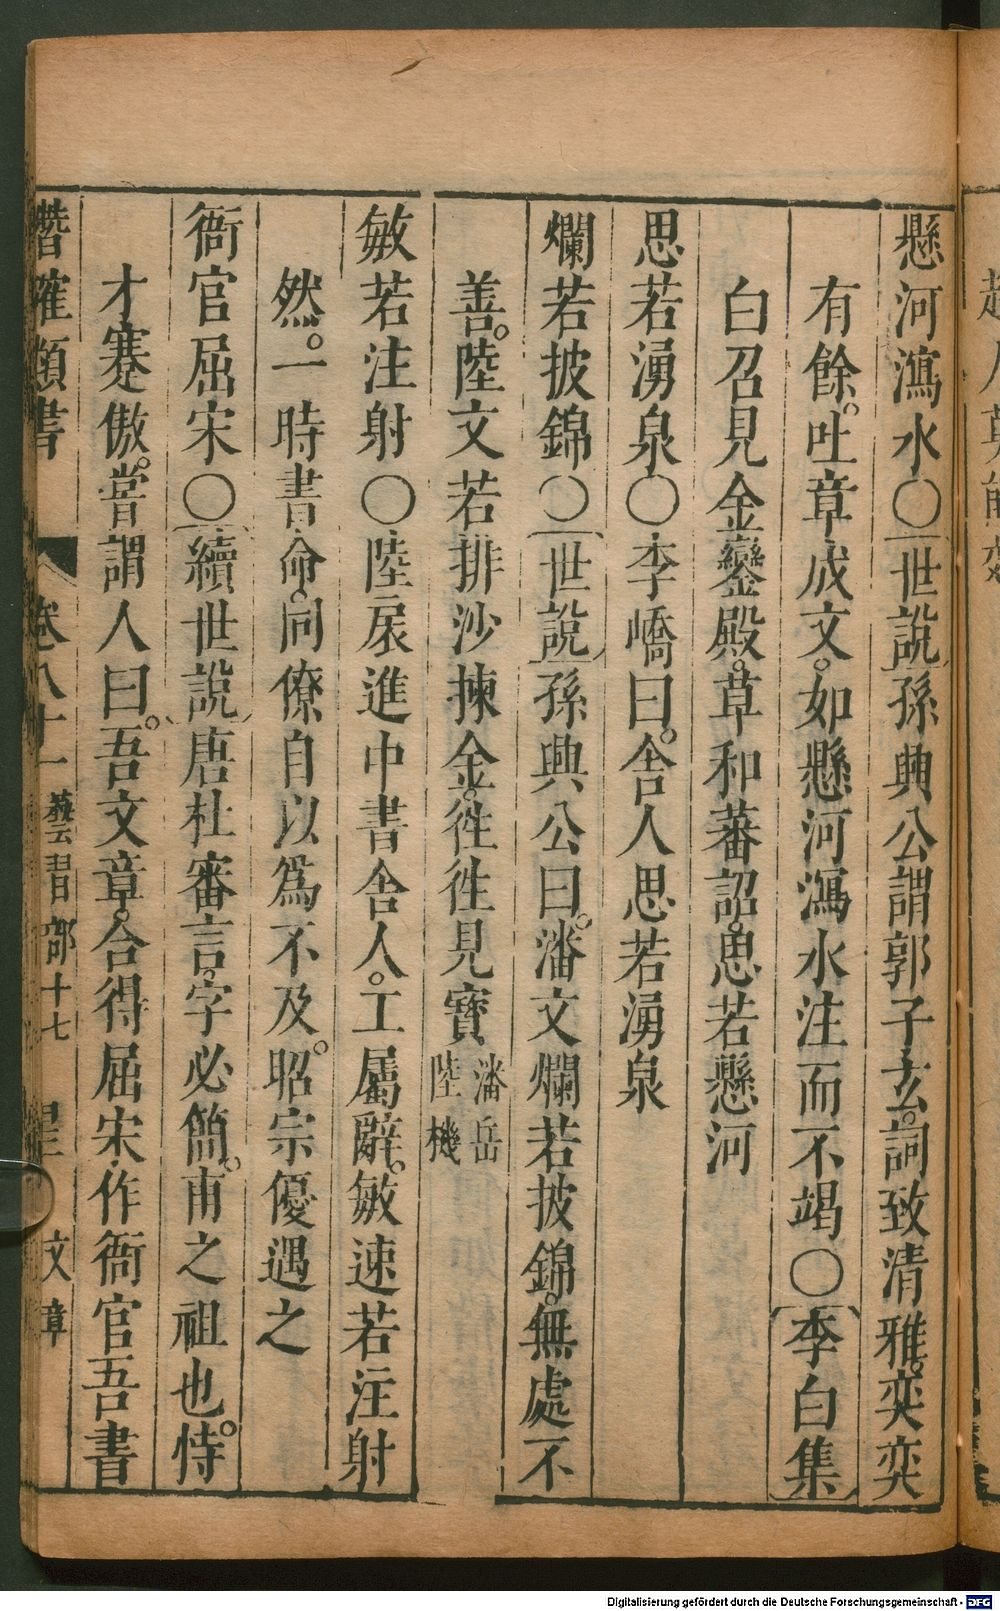 懸河瀉水〇世說孫興公謂郭子玄詞致清雅。奕奕
有餘。吐章成文。如懸河瀉水注而不竭〇李白集
白召見金鑾殿。草和蕃詔。思若懸河
思若湧泉〇李嶠曰。舍人思若湧泉
爛若披錦〇世說孫興公曰。潘文爛若披錦。無處不
善。陸文若排沙揀金。徃徃見寶潘岳陸機
敏若注射〇陸扆進中書舍人。工屬辭。敏速若注射
然。一時書命。同僚自以爲不及。昭宗優遇之
衙官屈宋〇續世說唐杜審言。字必簡。甫之祖也。恃
才蹇傲。嘗謂人曰。吾文章。合得屈宋作衙官吾書
潛確類書 卷八十一 藝習部十七 文章
Digitalisierung gefördert durch die Deutsche Forschungsgemeinschaft - DFG